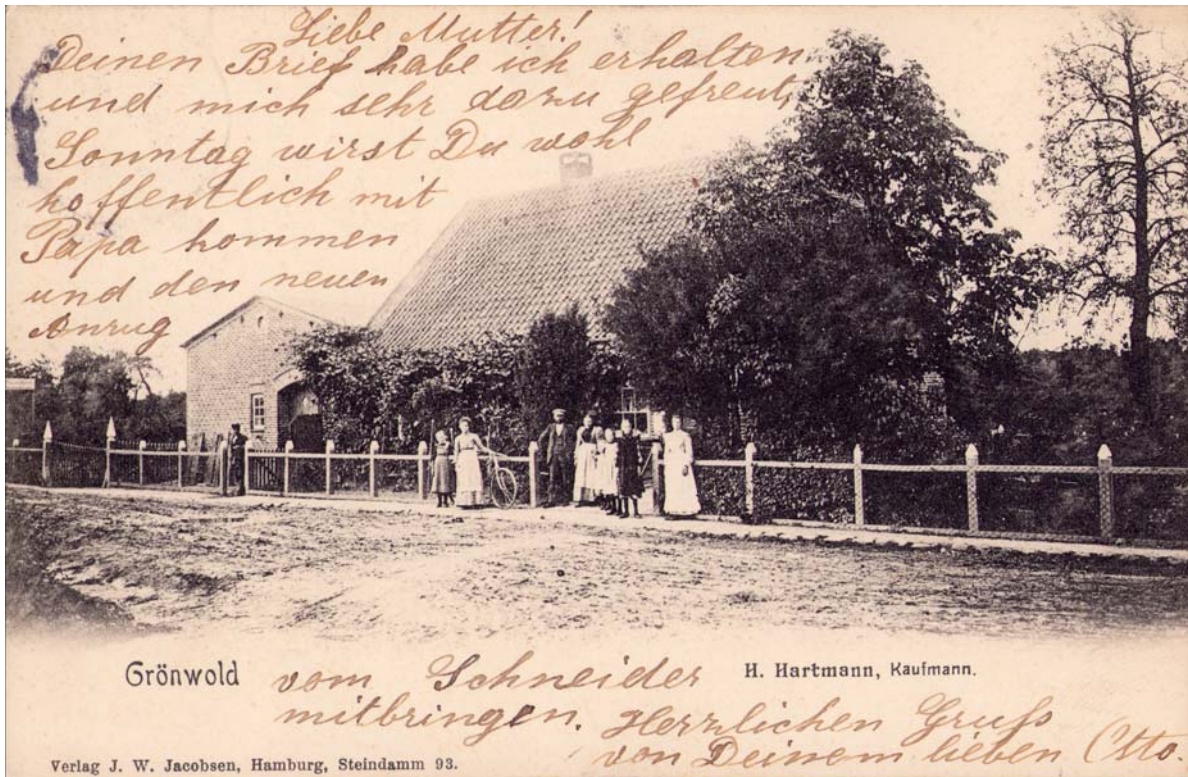 Liebe Mutter!
Deinen Brief habe ich erhalten
und mich sehr dazu gefreut,
Sonntag wirst Du wohl
hoffentlich mit
Papa kommen
und den neuen
Anzug
Grönwold
vom Schneider
mitbringen.
H. Hartmann, Kaufmann.
Herzlichen Gruß
von Deinem lieben Otto.
Verlag J. W. Jacobsen, Hamburg, Steindamm 93.